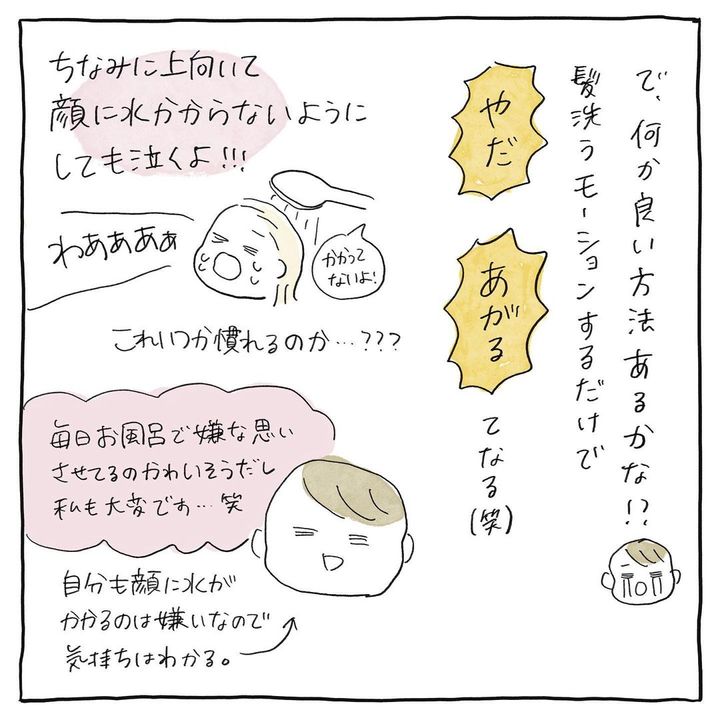 で、何か良い方法あるかな!?
髪洗うモーションするだけで
やだ
あがる
てなる(笑)
ちなみに上向いて
顔に水かからないように
しても泣くよ!!!
わあぁあぁ
かかって
ないよ!
これいつか慣れるのか…???
毎日お風呂で嫌な思い
させてるのかわいそうだし
私も大変です…笑
自分も顔に水が
かかるのは嫌いなので
気持ちはわかる。